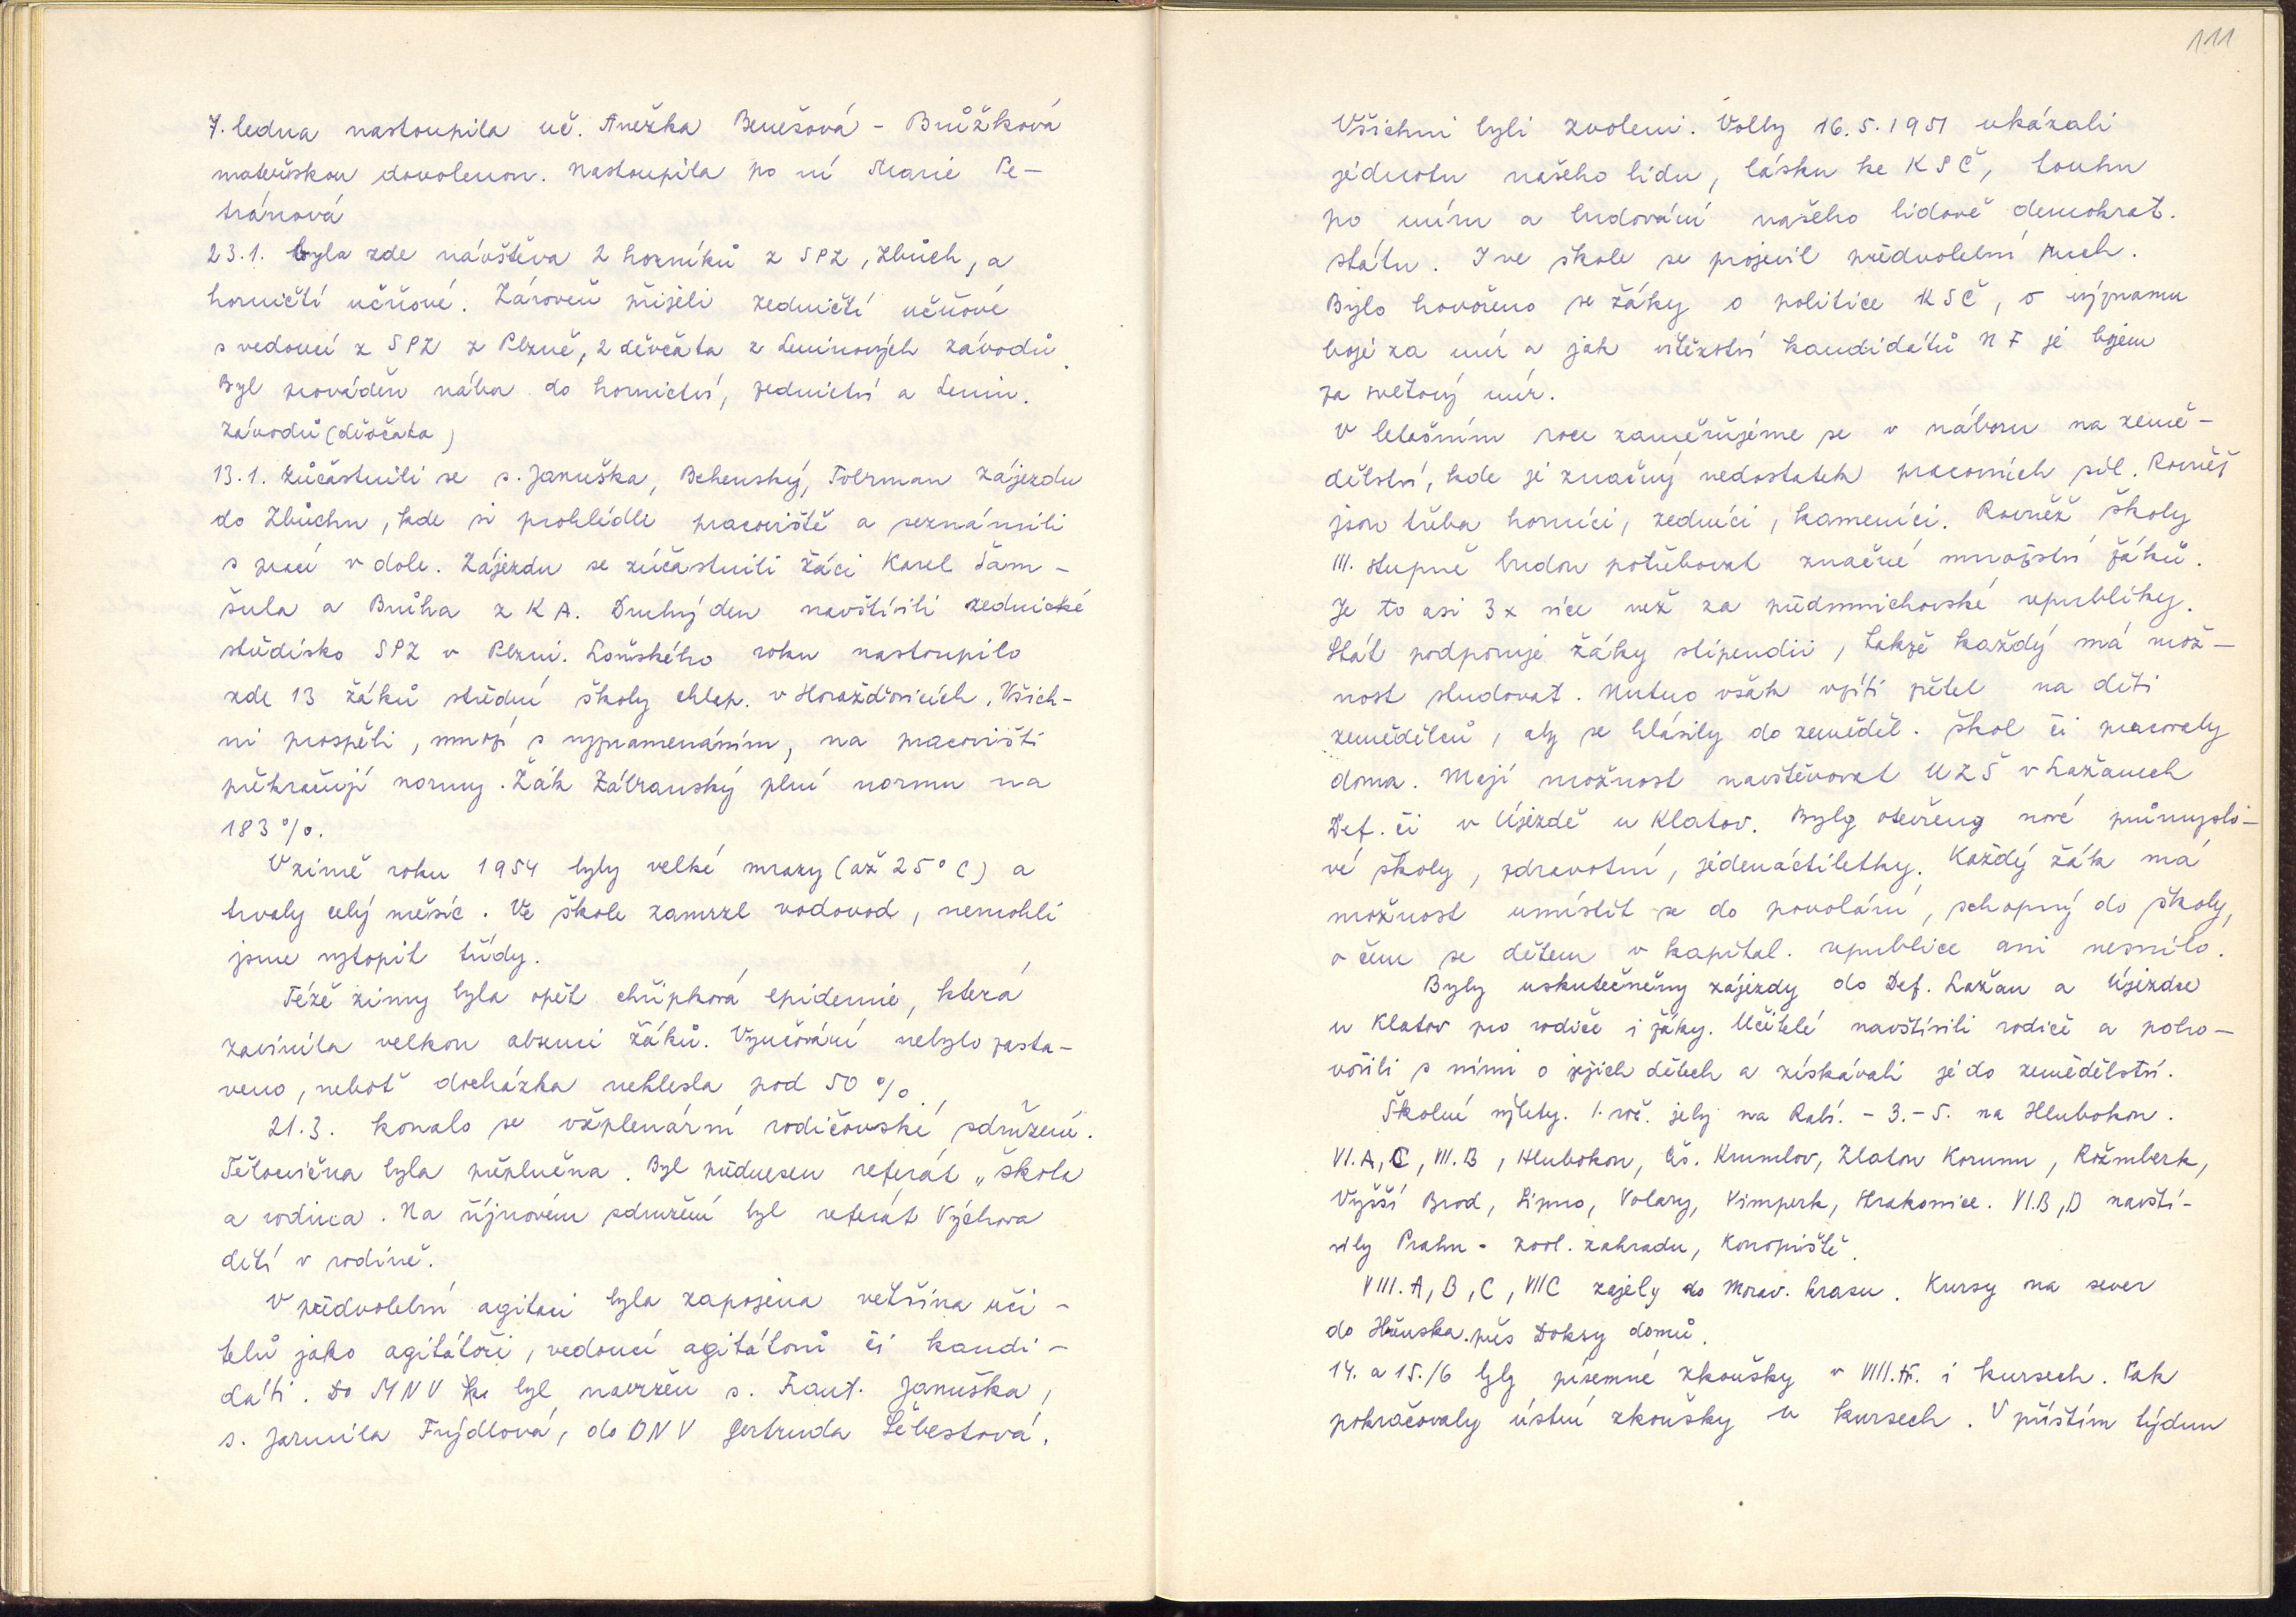 7. ledna nastoupila uč. Anežka Benešová - Brůžková
mateřskou dovolenou. Nastoupila po ní Marie Pe-
tránová
23.1. byla zde návštěva 2 horníků z SPZ, Zbůch, a
horničtí učňové. Zároveň přijeli zedničtí učňové
s vedoucí z SPZ z Plzně, 2 děvčata z Leninových závodů.
Byl prováděn nábor do hornictví, zednictví a Lenin.
závodů (děvčata)
13.1. zúčastnili se s. Januška, Behenský, Tolrman zájezdu
do Zbůchu, kde si prohlédli pracoviště a seznámili
s prací v dole. Zájezdu se zúčastnili žáci Karel Šam-
šula a Brůha z K A. Druhý den navštívili zednické
středisko SPZ v Plzni. Loňského roku nastoupilo
zde 13 žáků střední školy chlap. v Horažďovicích. Všich-
ni prospěli, mnozí s vyznamenáním, na pracovišti
překračují normy. Žák Zábranský plní normu na
183 %.
V zimě roku 1954 byly velké mrazy (až 25° C) a
trvaly celý měsíc. Ve škole zamrzl vodovod, nemohli
jsme vytopit třídy.
Téže zimy byla opět chřipková epidemie, která
zavinila velkou absenci žáků. Vyučování nebylo zasta-
veno, neboť docházka neklesla pod 50 %.
21.3. konalo se všeplenární rodičovské sdružení.
Tělocvična byla přeplněna. Byl přednesen referát „škola
a rodina. Na říjnovém sdružení byl referát Výchova
dětí v rodině.
V předvolební agitaci byla zapojena většina uči-
telů jako agitátoři, vedoucí agitátorů či kandi-
dáti. Do MNV byl navržen s. Frant. Januška,
s. Jarmila Frýdlová, do ONV Gertruda Šebestová.
111
Všichni byli zvoleni. Volby 16.5.1951 ukázali
jednotu našeho lidu, lásku ke KSČ, touhu
po míru a budování našeho lidově demokrat.
státu. I ve škole se projevil předvolební ruch.
Bylo hovořeno se žáky o politice KSČ, o významu
boje za mír a jak vítězství kandidátů NF je bojem
za světový mír.
V letošním roce zaměřujeme se v náboru na země-
dělství, kde je značný nedostatek pracovních sil. Rovněž
jsou třeba horníci, zedníci, kameníci. Rovněž školy
III. stupně budou potřebovat značné množství žáků.
Je to asi 3x více než za předmnichovské republiky.
Stát podporuje žáky stipendii, takže každý má mož-
nost studovat. Nutno však vzíti zřetel na děti
zemědělců, aby se hlásily do zeměděl. škol či pracovaly
doma. Mají možnost navštěvovat UZŠ v Lažanech
Def. či v Újezdě u Klatov. Byly otevřeny nové průmyslo-
vé školy, zdravotní, jedenáctiletky. Každý žák má
možnost umístit se do povolání, schopný do školy,
o čem se dětem v kapital. republice ani nesnilo.
Byly uskutečněny zájezdy do Def. Lažan a Újezdu
u Klatov pro rodiče i žáky. Učitelé navštívili rodiče a poho-
vořili s nimi o jejich dětech a získávali je do zemědělství.
Školní výlety. 1. roč. jely na Rabí. - 3.-5. na Hlubokou.
VI.A, C, VII.B, Hlubokou, Čs. Krumlov, Zlatou Korunu, Rožmberk,
Vyšší Brod, Lipno, Volary, Vimperk, Strakonice. VI.B, D navští-
vily Prahu - zool. zahradu, Konopiště.
VIII. A, B, C, VII C zajely do Morav. krasu. Kursy na sever
do Hřenska. přes Doksy domů.
14. a 15./6 byly písemné zkoušky v VIII. tř. i kursech. Pak
pokračovaly ústní zkoušky v kursech. V příštím týdnu